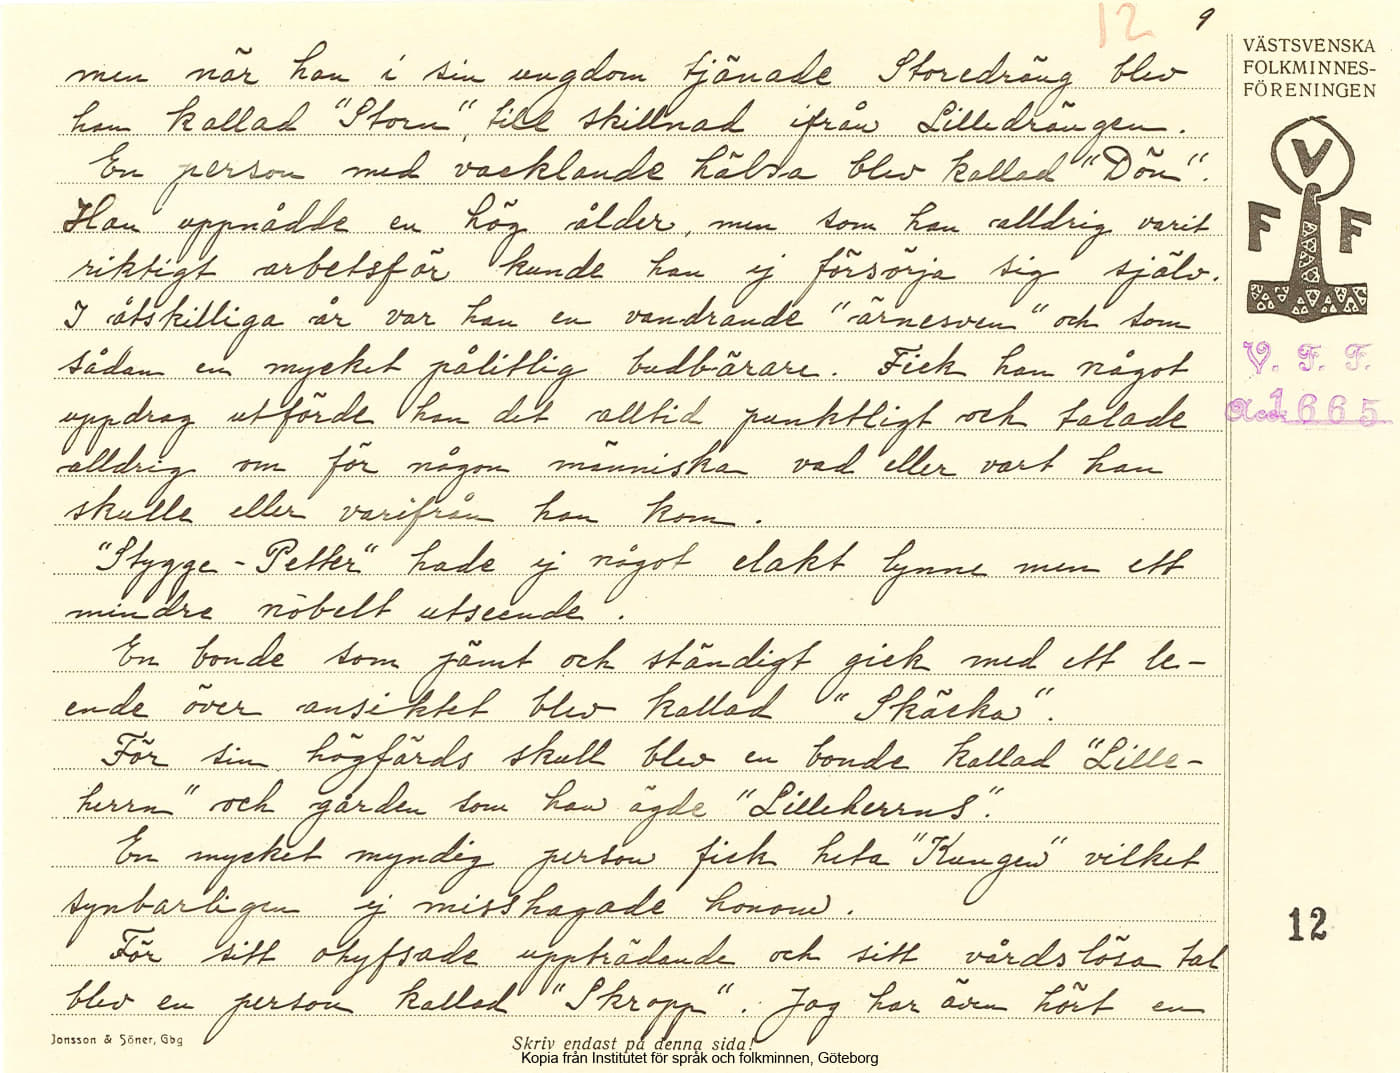 12
9
VÄSTSVENSKA
FOLKMINNES-
FÖRENINGEN
V
F F
V. F. F.
Acc. 1665
men när han i sin ungdom tjänade Storedräng blev
han kallad "Storn", till skillnad ifrån Lilledrängen.
En person med vacklande hälsa blev kallad "Dön".
Han uppnådde en hög ålder, men som han alldrig varit
riktigt arbetsför kunde han ej försörja sig själv.
I åtskilliga år var han en vandrande "ärnesven" och som
sådan en mycket pålitlig budbärare. Fick han något
uppdrag utförde han det alltid punktligt och talade
alldrig om för någon människa vad eller vart han
skulle eller varifrån han kom.
"Stygge-Petter" hade ej något elakt lynne men ett
mindre nobelt utseende.
En bonde som jämt och ständigt gick med ett le-
ende över ansiktet blev kallad "Skäcka".
För sin högfärds skull blev en bonde kallad "Lille-
herrn" och gården som han ägde "Lilleherrns".
En mycket myndig person fick heta "Kungen" vilket
synbarligen ej misshagade honom.
För sitt ohyfsade uppträdande och sitt vårdslösa tal
blev en person kallad "Skropp". Jag har även hört en
12
Jonsson & Söner, Gbg
Skriv endast på denna sida!
Kopia från Institutet för språk och folkminnen, Göteborg